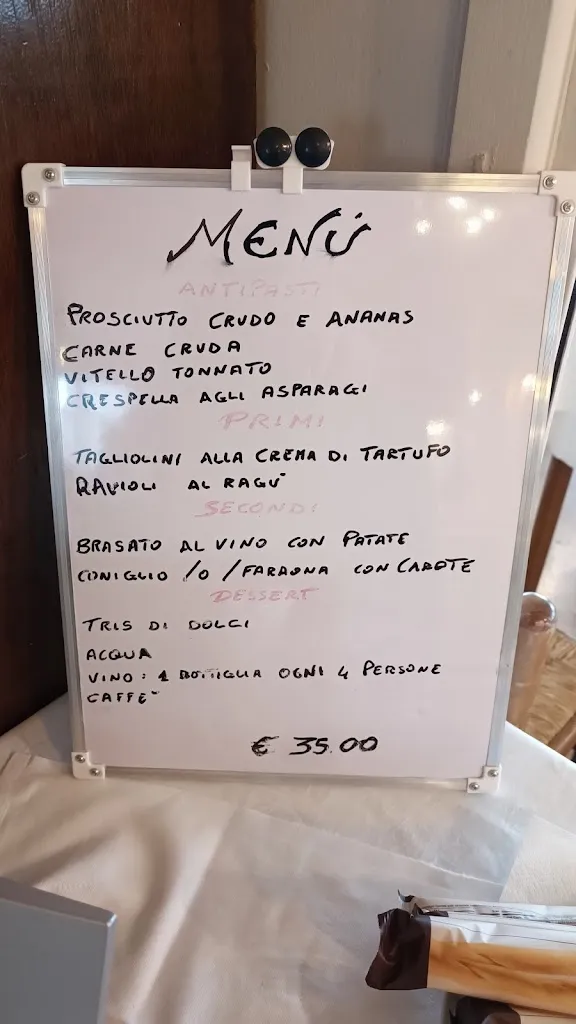 MENÙ
ANTIPASTI
PROSCIUTTO CRUDO E ANANAS
CARNE CRUDA
VITELLO TONNATO
CRESPELLA AGLI ASPARAGI
PRIMI
TAGLIOLINI ALLA CREMA DI TARTUFO
RAVIOLI AL RAGÙ
SECONDI
BRASATO AL VINO CON PATATE
CONIGLIO /O/ FARAONA CON CAROTE
DESSERT
TRIS DI DOLCI
ACQUA
VINO: 1 BOTTIGLIA OGNI 4 PERSONE
CAFFE'
€ 35.00